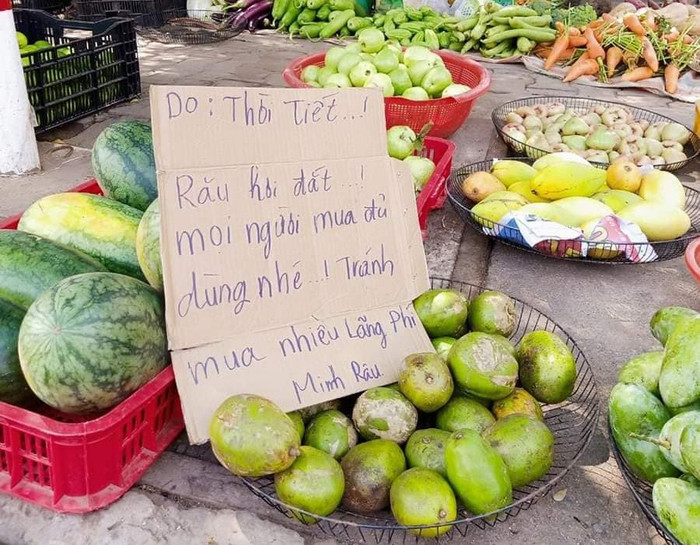 Do : Thời Tiết...!
Rău hơi đất...!
mọi người mua đủ
dùng nhé...! Tránh
mua nhiêu Lãng Phí
Minh Râu